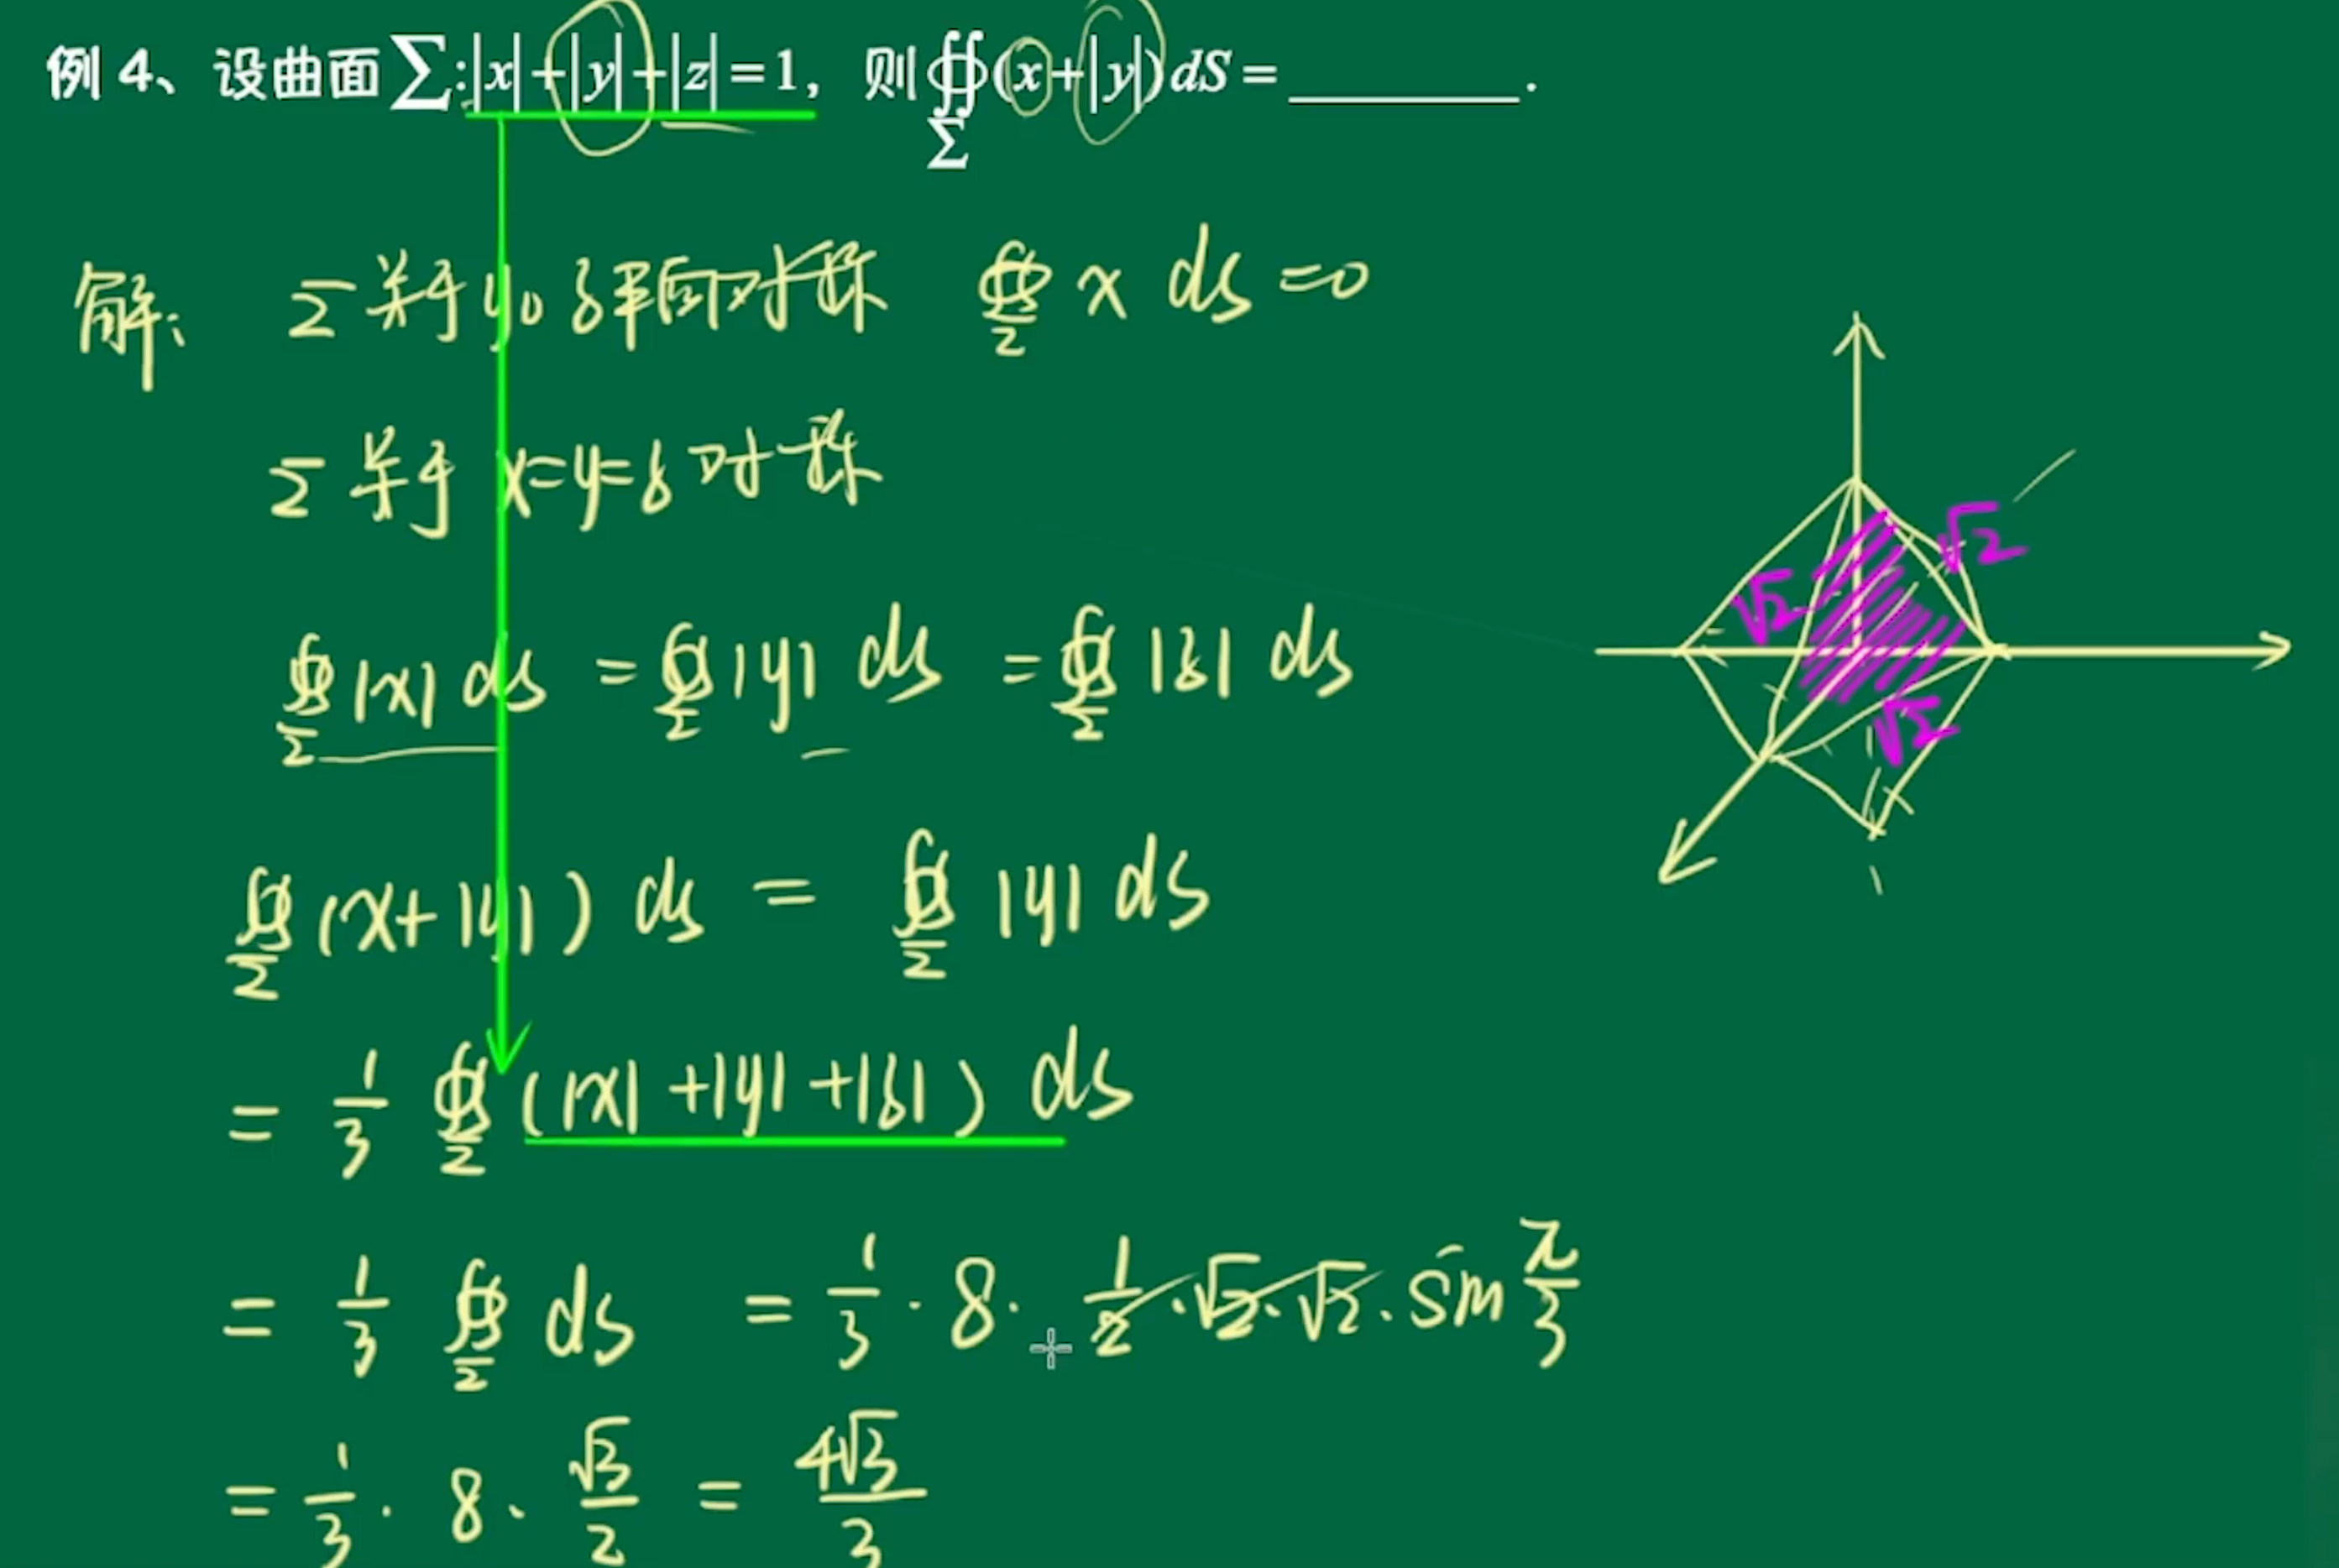 例 4、设曲面 ∑:|x|+|y|+|z|=1, 则 ∯_∑ (x+|y|)dS = ________.
解: Σ关于yoz平面对称 ∯_Σ x ds =0
Σ关于 x=y=z 对称
∯_Σ |x| ds = ∯_Σ |y| ds = ∯_Σ |z| ds
∯_Σ (x+|y|) ds = ∯_Σ |y| ds
= 1/3 ∯_Σ (|x|+|y|+|z|) ds
= 1/3 ∯_Σ ds = 1/3 · 8 · 1/2 · √2 · √2 · sin π/3
= 1/3 · 8 · √3/2 = 4√3/3
√2
√2
√2